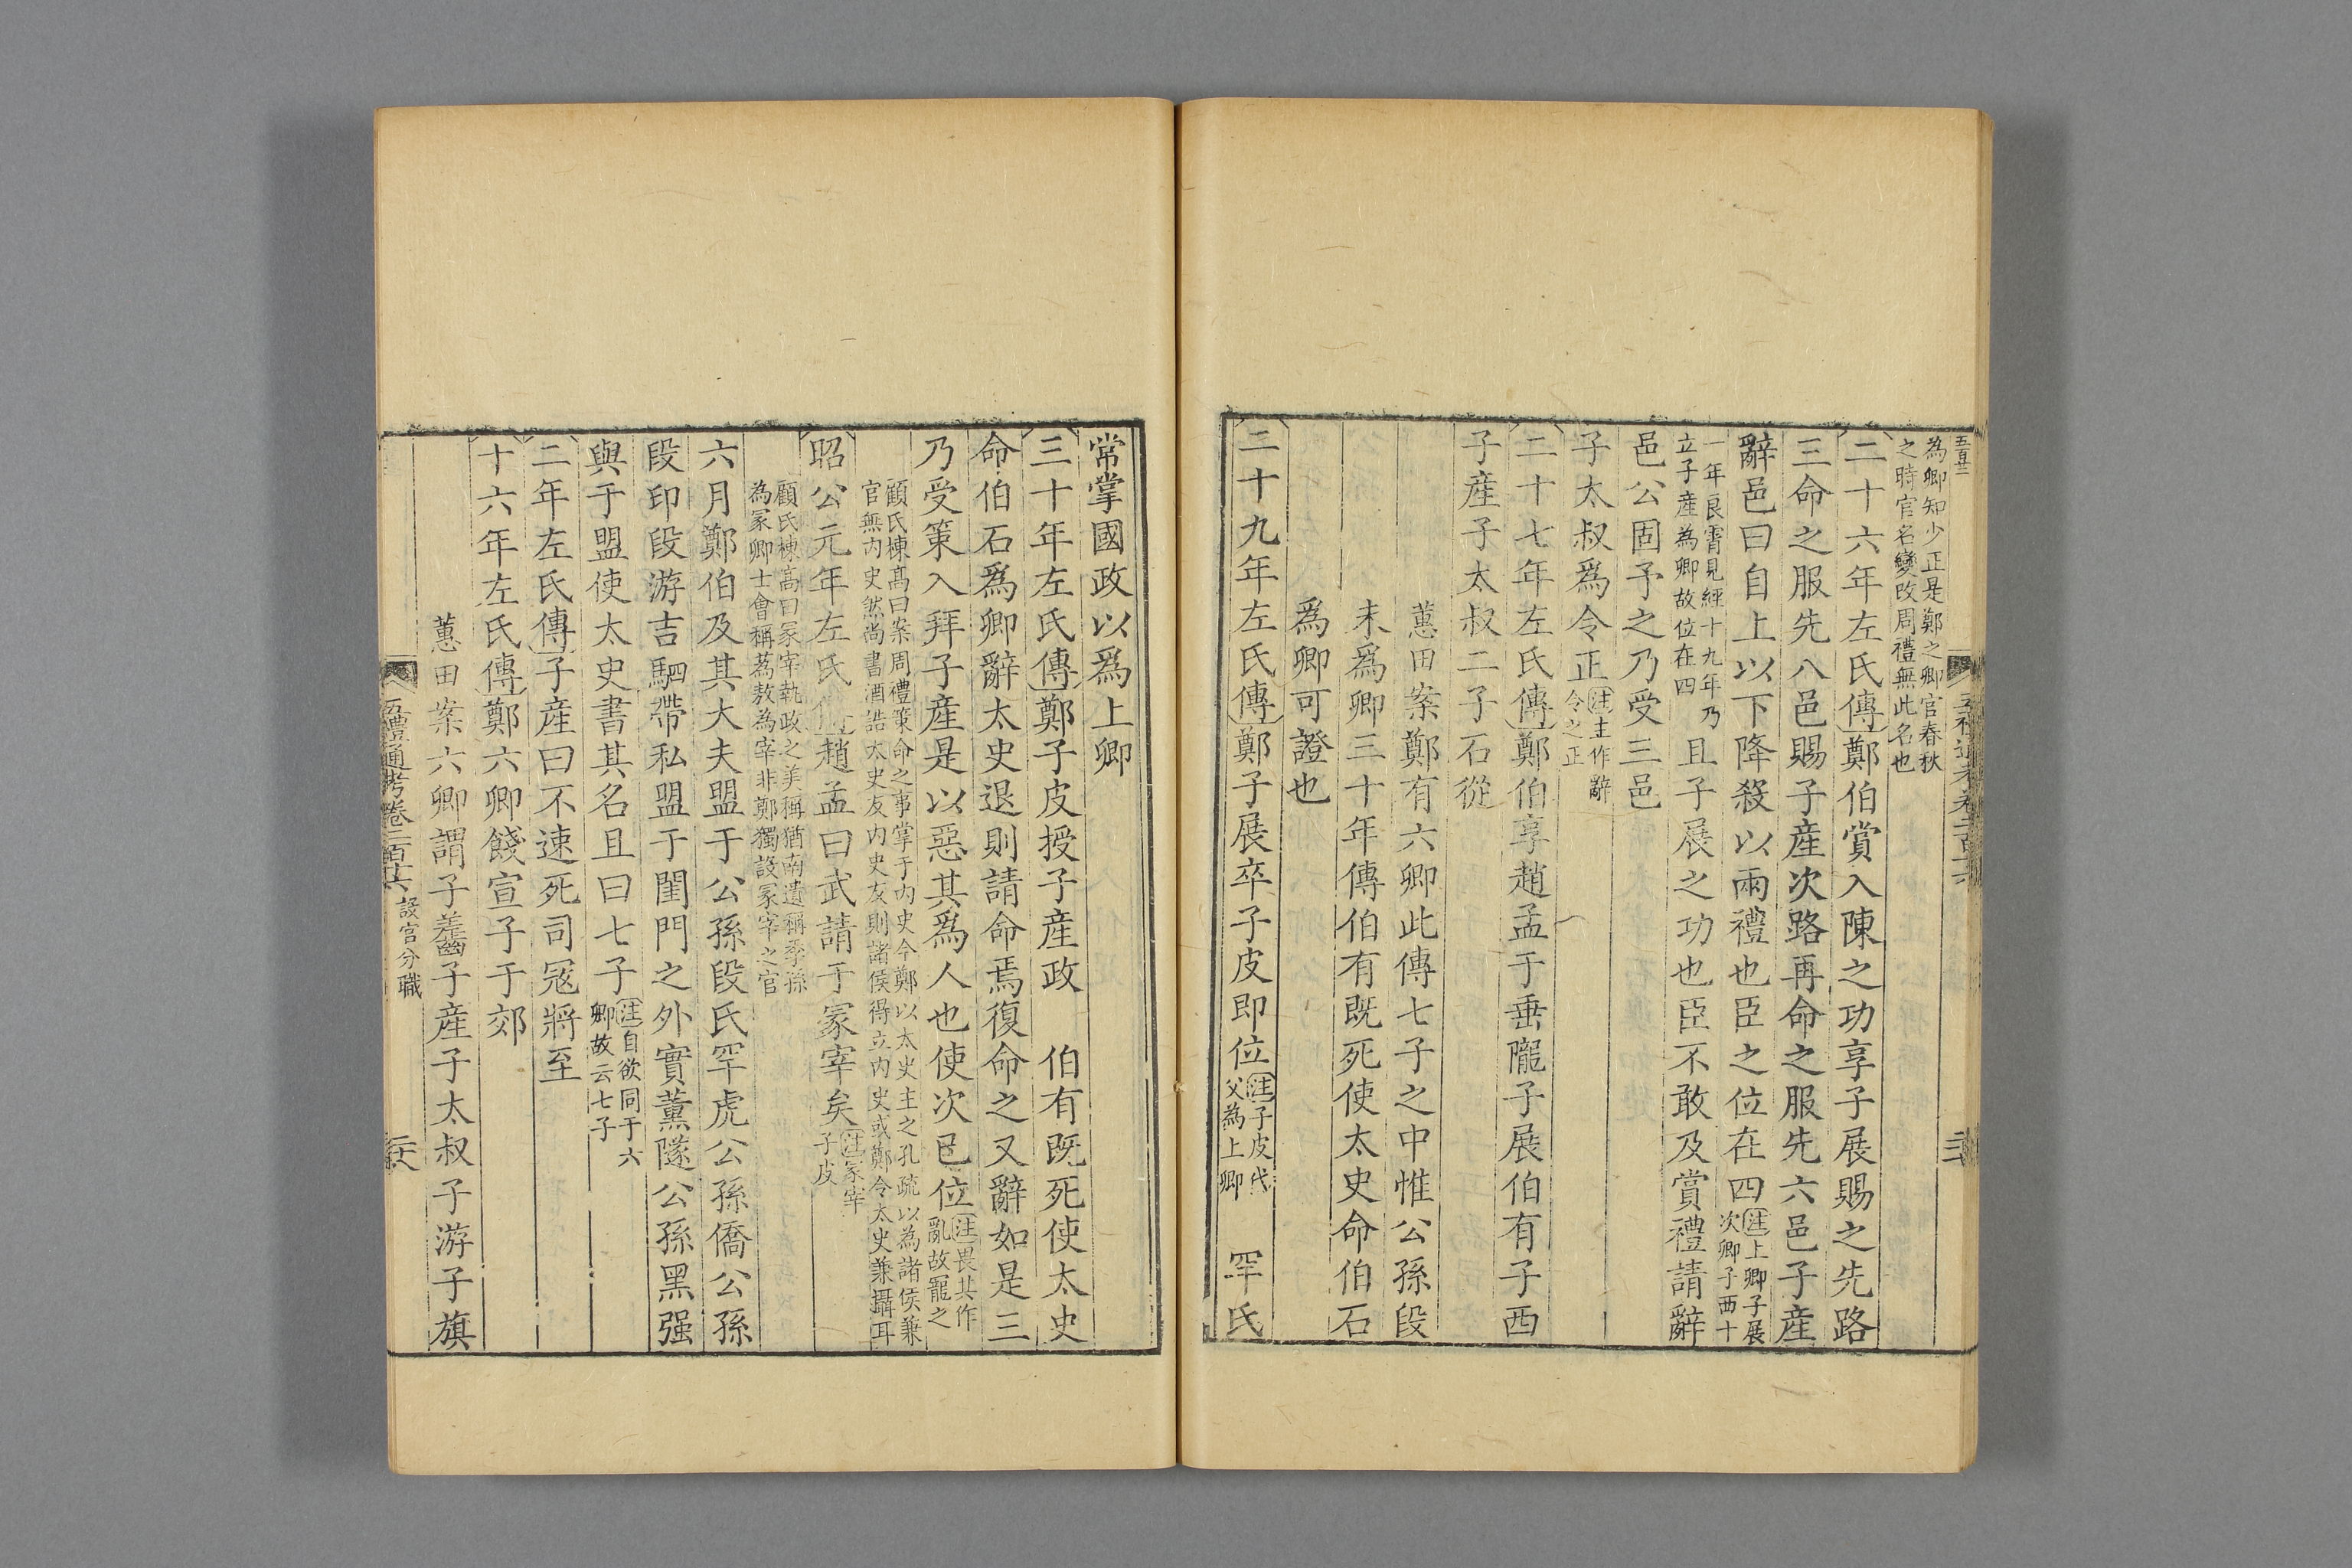 為卿知少正是鄭之卿官春秋
之時官名變改周禮無此名也
二十六年左氏傳鄭伯賞入陳之功享子展賜之先路
三命之服先八邑賜子產次路再命之服先六邑子產
辭邑曰自上以下降殺以兩禮也臣之位在四注上卿子展次卿子西十
一年良霄見經十九年乃立子產為卿故位在四且子展之功也臣不敢及賞禮請辭
邑公固予之乃受三邑
子太叔爲令正注主作辭令之正
二十七年左氏傳鄭伯享趙孟于垂隴子展伯有子西
子產子太叔二子石從
蕙田案鄭有六卿此傳七子之中惟公孫段
未爲卿三十年傳伯有既死使太史命伯石
爲卿可證也
二十九年左氏傳鄭子展卒子皮即位注子皮代父為上卿 罕氏
常掌國政以爲上卿
三十年左氏傳鄭子皮授子產政 伯有既死使太史
命伯石爲卿辭太史退則請命焉復命之又辭如是三
乃受策入拜子產是以惡其爲人也使次已位注畏其作亂故寵之
顧氏棟高曰案周禮策命之事掌于內史今鄭以太史主之孔疏以為諸侯兼
官無內史然尚書酒誥太史友內史友則諸侯得立內史或鄭令太史兼攝耳
昭公元年左氏傳趙孟曰武請于冢宰矣注冢宰子皮
顧氏棟高曰冢宰執政之美稱猶南遺稱季孫
為冢卿士會稱蒍敖為宰非鄭獨設冢宰之官
六月鄭伯及其大夫盟于公孫段氏罕虎公孫僑公孫
段印段游吉駟帶私盟于閨門之外實薰隧公孫黑强
與于盟使太史書其名且曰七子注自欲同于六卿故云七子
二年左氏傳子產曰不速死司寇將至
十六年左氏傳鄭六卿餞宣子于郊
蕙田案六卿謂子齹子產子太叔子游子旗
五禮通考卷二百十六 設官分職